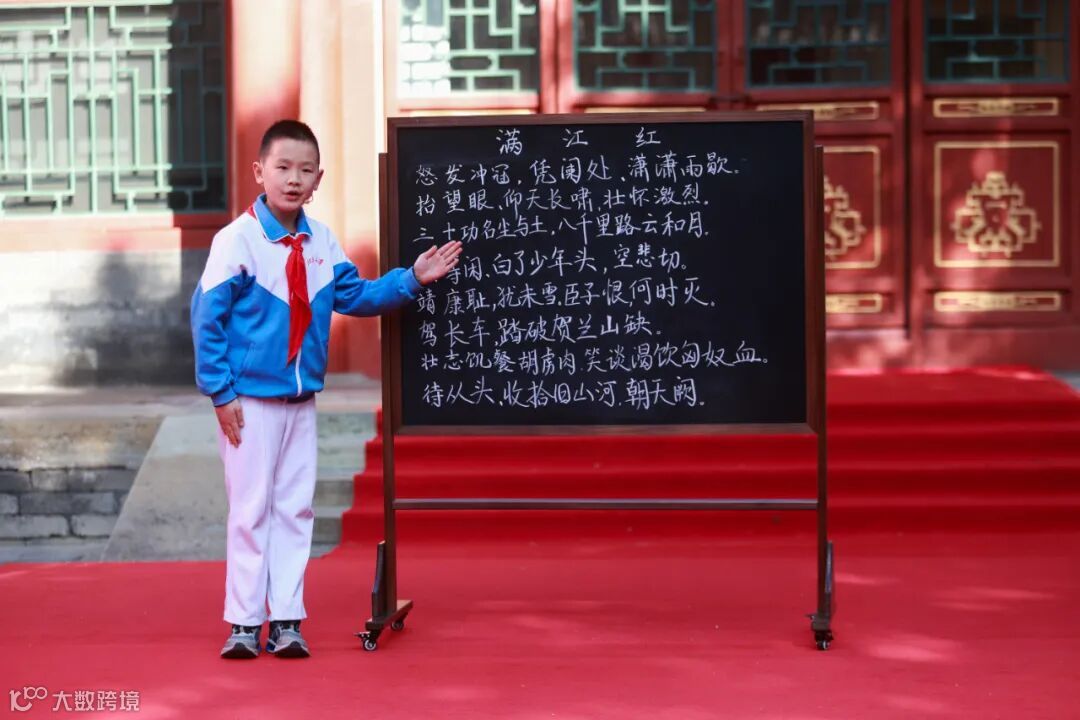 满 江 红
怒发冲冠，凭阑处、潇潇雨歇。
抬望眼、仰天长啸、壮怀激烈。
三十功名尘与土，八千里路云和月.
等闲、白了少年头，空悲切。
靖康耻，犹未雪，臣子恨何时灭.
驾长车，踏破贺兰山缺。
壮志饥餐胡虏肉.笑谈渴饮匈奴血。
待从头、收拾旧山河.朝天阙。
大数跨境